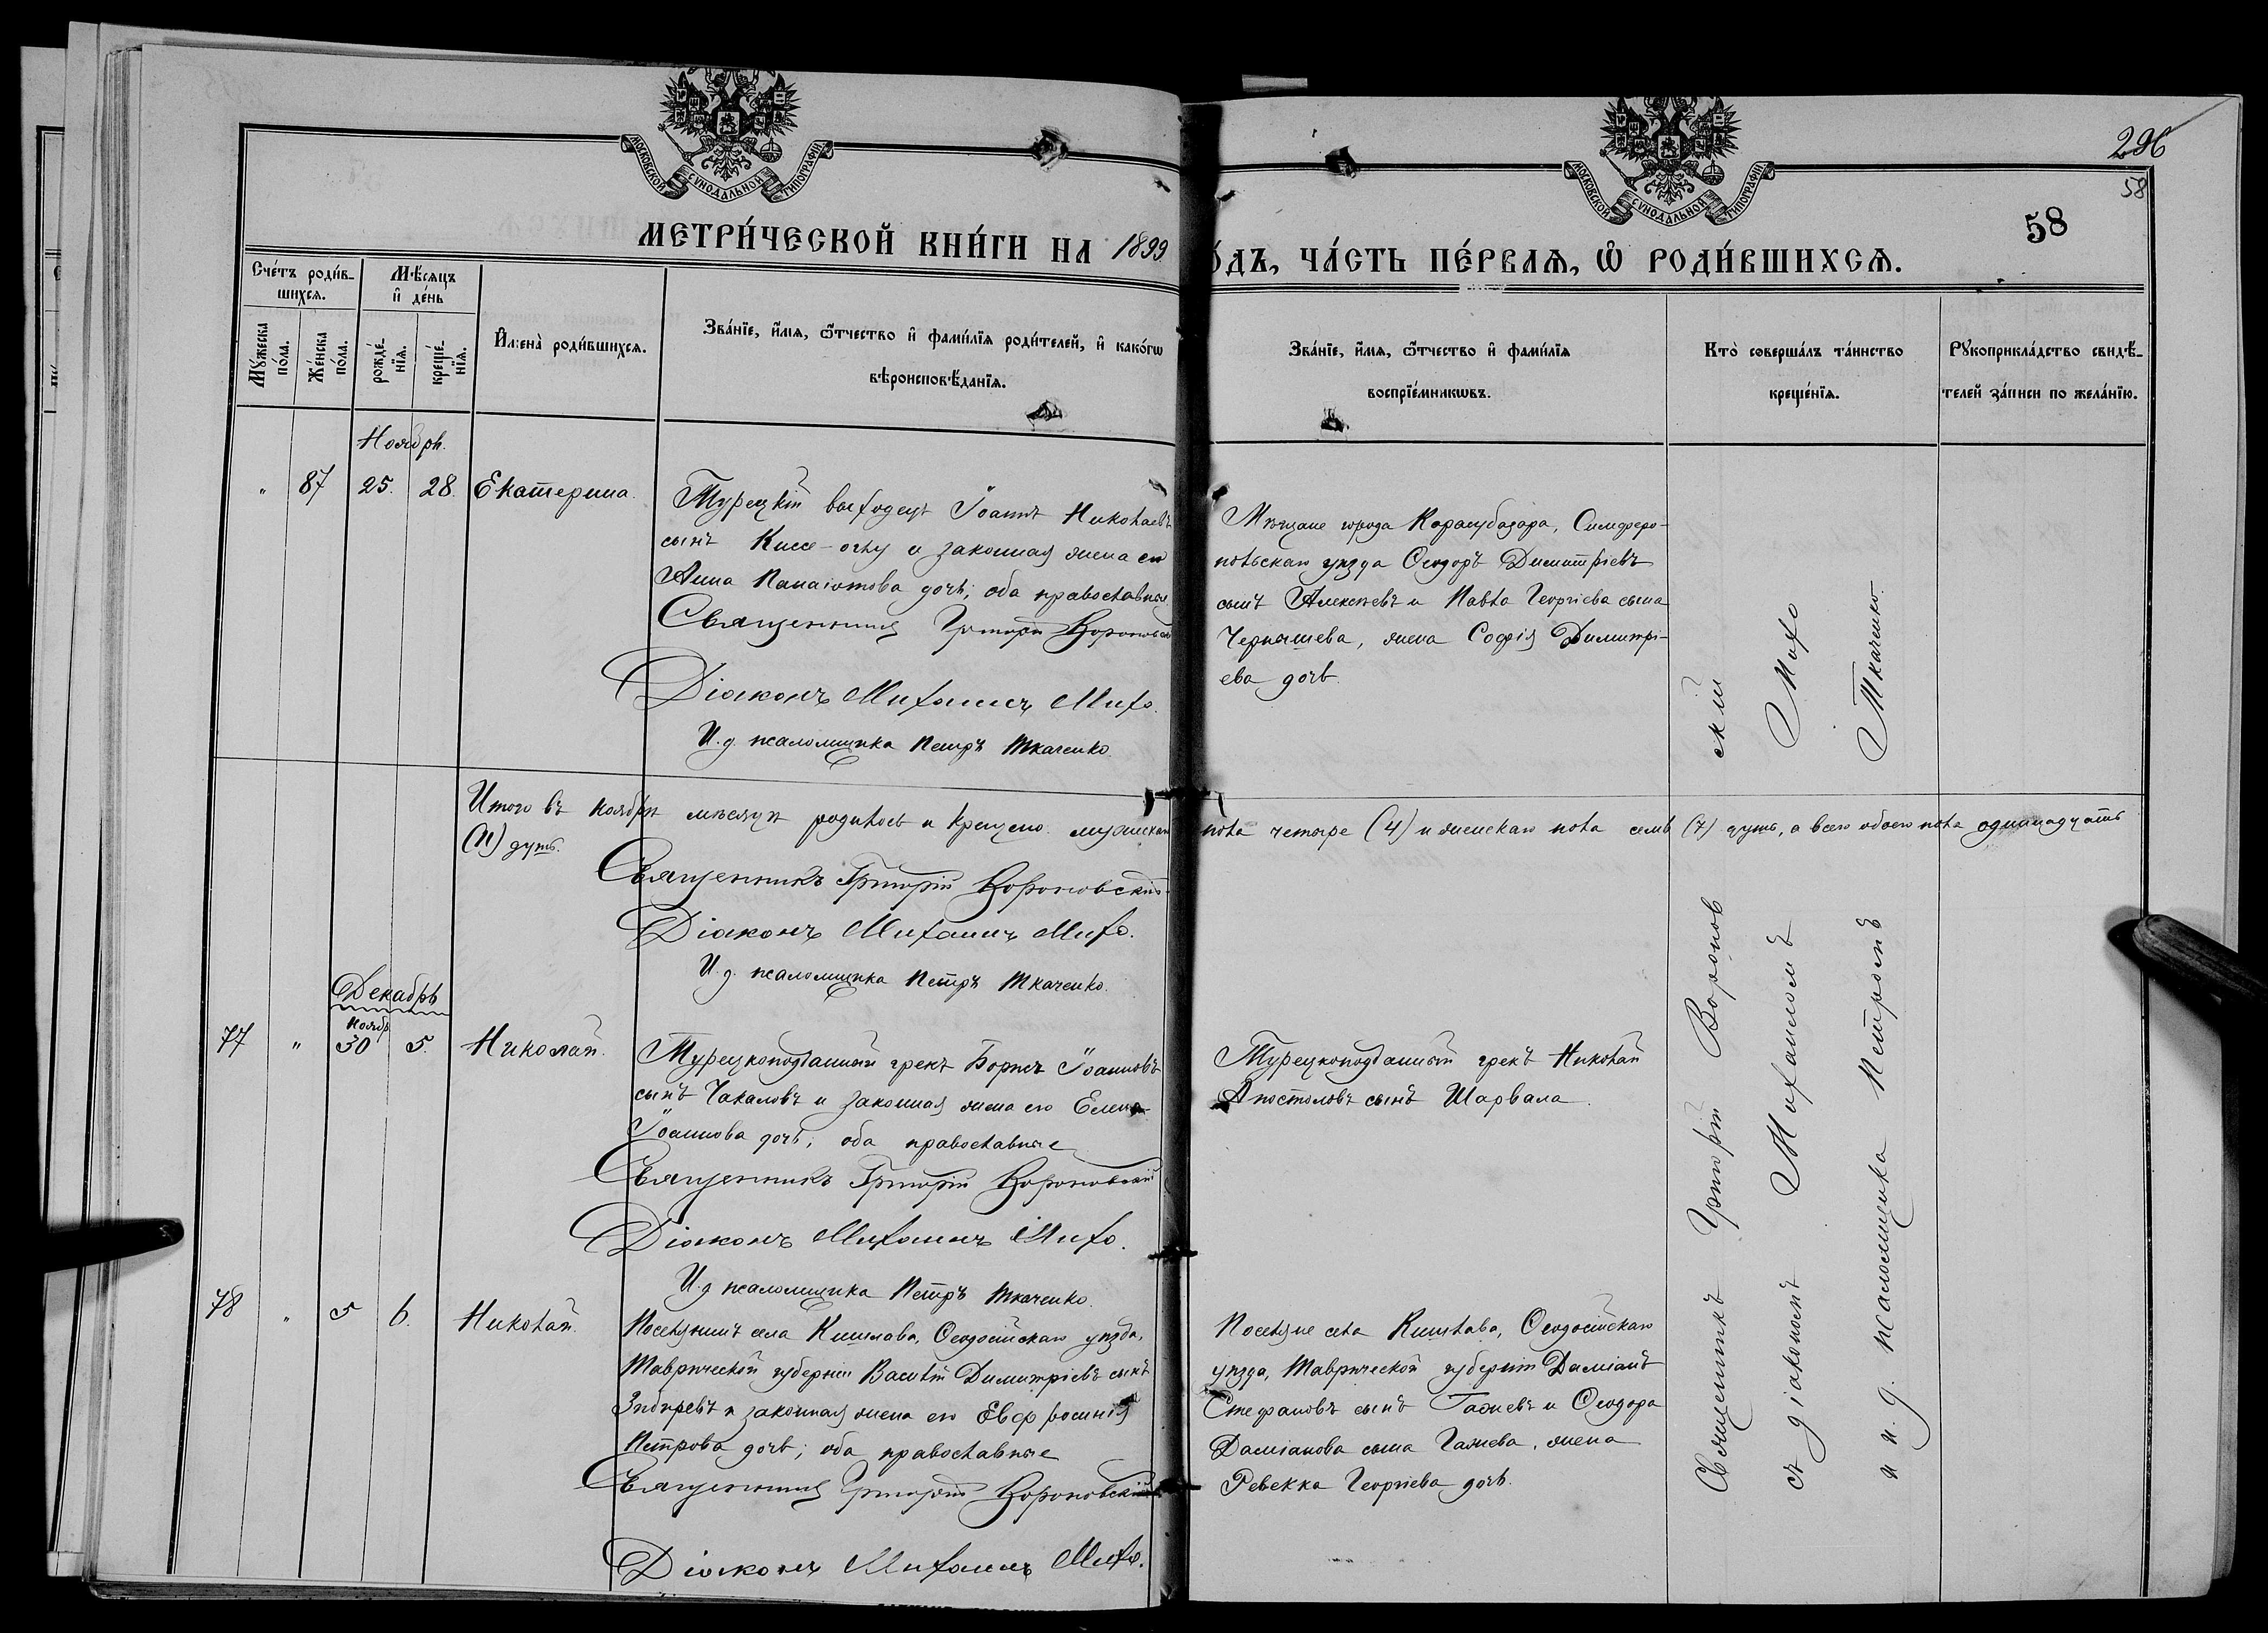 296
58
58
МОСКОВСКОЙ СѴНОДАЛЬНОЙ ТИПОГРАФІИ
МОСКОВСКОЙ СѴНОДАЛЬНОЙ ТИПОГРАФІИ
МЕТРИ́ЧЕСКОЙ КНИ́ГИ НА 1899
О́ДЪ, ЧА́СТЬ ПЕ́РВАѦ, Ѡ РОДИ́ВШИХСѦ.
Сче́тъ роди́в-
шихсѧ.
Мѣ́сѧцъ
и҆ де́нь
Му́жеска
по́ла.
Же́нска
по́ла.
рожде́-
нїѧ.
креще́-
нїѧ.
И҆мена̀ роди́вшихсѧ.
Зва́нїе, и҆́мѧ, ѻ҆́тчество и҆ фами́лїѧ роди́телей, и҆ како́гѡ
вѣроисповѣ́данїѧ.
Зва́нїе, и҆́мѧ, ѻ҆́тчество и҆ фами́лїѧ
воспрїе́мникѡвъ.
Кто̀ соверша́лъ та́инство
креще́нїѧ.
Рꙋкоприкла́дство свидѣ́-
телей за́писи по жела́нїю.
Ноябрь.
" 87 25. 28. Екатерина.
Турецкій выходецъ Іоаннъ Николаевъ
сынъ Киссе-оглу и законная жена его
Анна Панаіотова дочь; оба православные
Священникъ Григорій Вороновскій
Діаконъ Михаилъ Михо.
И. д. псаломщика Петръ Ткаченко.
Мѣщане города Карасубазара, Симферо-
польскаго уѣзда Ѳеодоръ Димитріевъ
сынъ Алексѣевъ и Павла Георгіева сына
Чернышева, жена Софія Димитрі-
ева дочь.
Итого въ ноябрѣ мѣсяцѣ родилось и крещено мужескаго пола четыре (4) и женскаго пола семь (7) душъ, а всего обоего пола одиннадцать
(11) душъ.
Священникъ Григорій Вороновскій
Діаконъ Михаилъ Михо.
И. д. псаломщика Петръ Ткаченко.
Декабрь
77 " Ноябр. 30 5. Николай.
Турецкоподданный грекъ Борисъ Іоанновъ
сынъ Чакаловъ и законная жена его Елена
Іоаннова дочь; оба православные
Священникъ Григорій Вороновскій
Діаконъ Михаилъ Михо.
И. д. псаломщика Петръ Ткаченко.
Турецкоподданный грекъ Николай
Апостоловъ сынъ Шарвала.
78 " 5 6. Николай.
Поселянинъ села Кишлава, Ѳеодосійскаго уѣзда,
Таврической губерніи Василій Димитріевъ сынъ
Збиревъ и законная жена его Евфросинія
Петрова дочь; оба православные
Священникъ Григорій Вороновскій
Діаконъ Михаилъ Михо.
Поселяне села Кишлава, Ѳеодосійскаго
уѣзда, Таврической губерніи Даміанъ
Стефановъ сынъ Гажевъ и Ѳеодора
Даміанова сына Гажева, жена
Ревекка Георгіева дочь.
Священникъ Григорій Вороновскій
съ діакономъ Михаиломъ Михо
и и. д. псаломщика Петромъ Ткаченко.